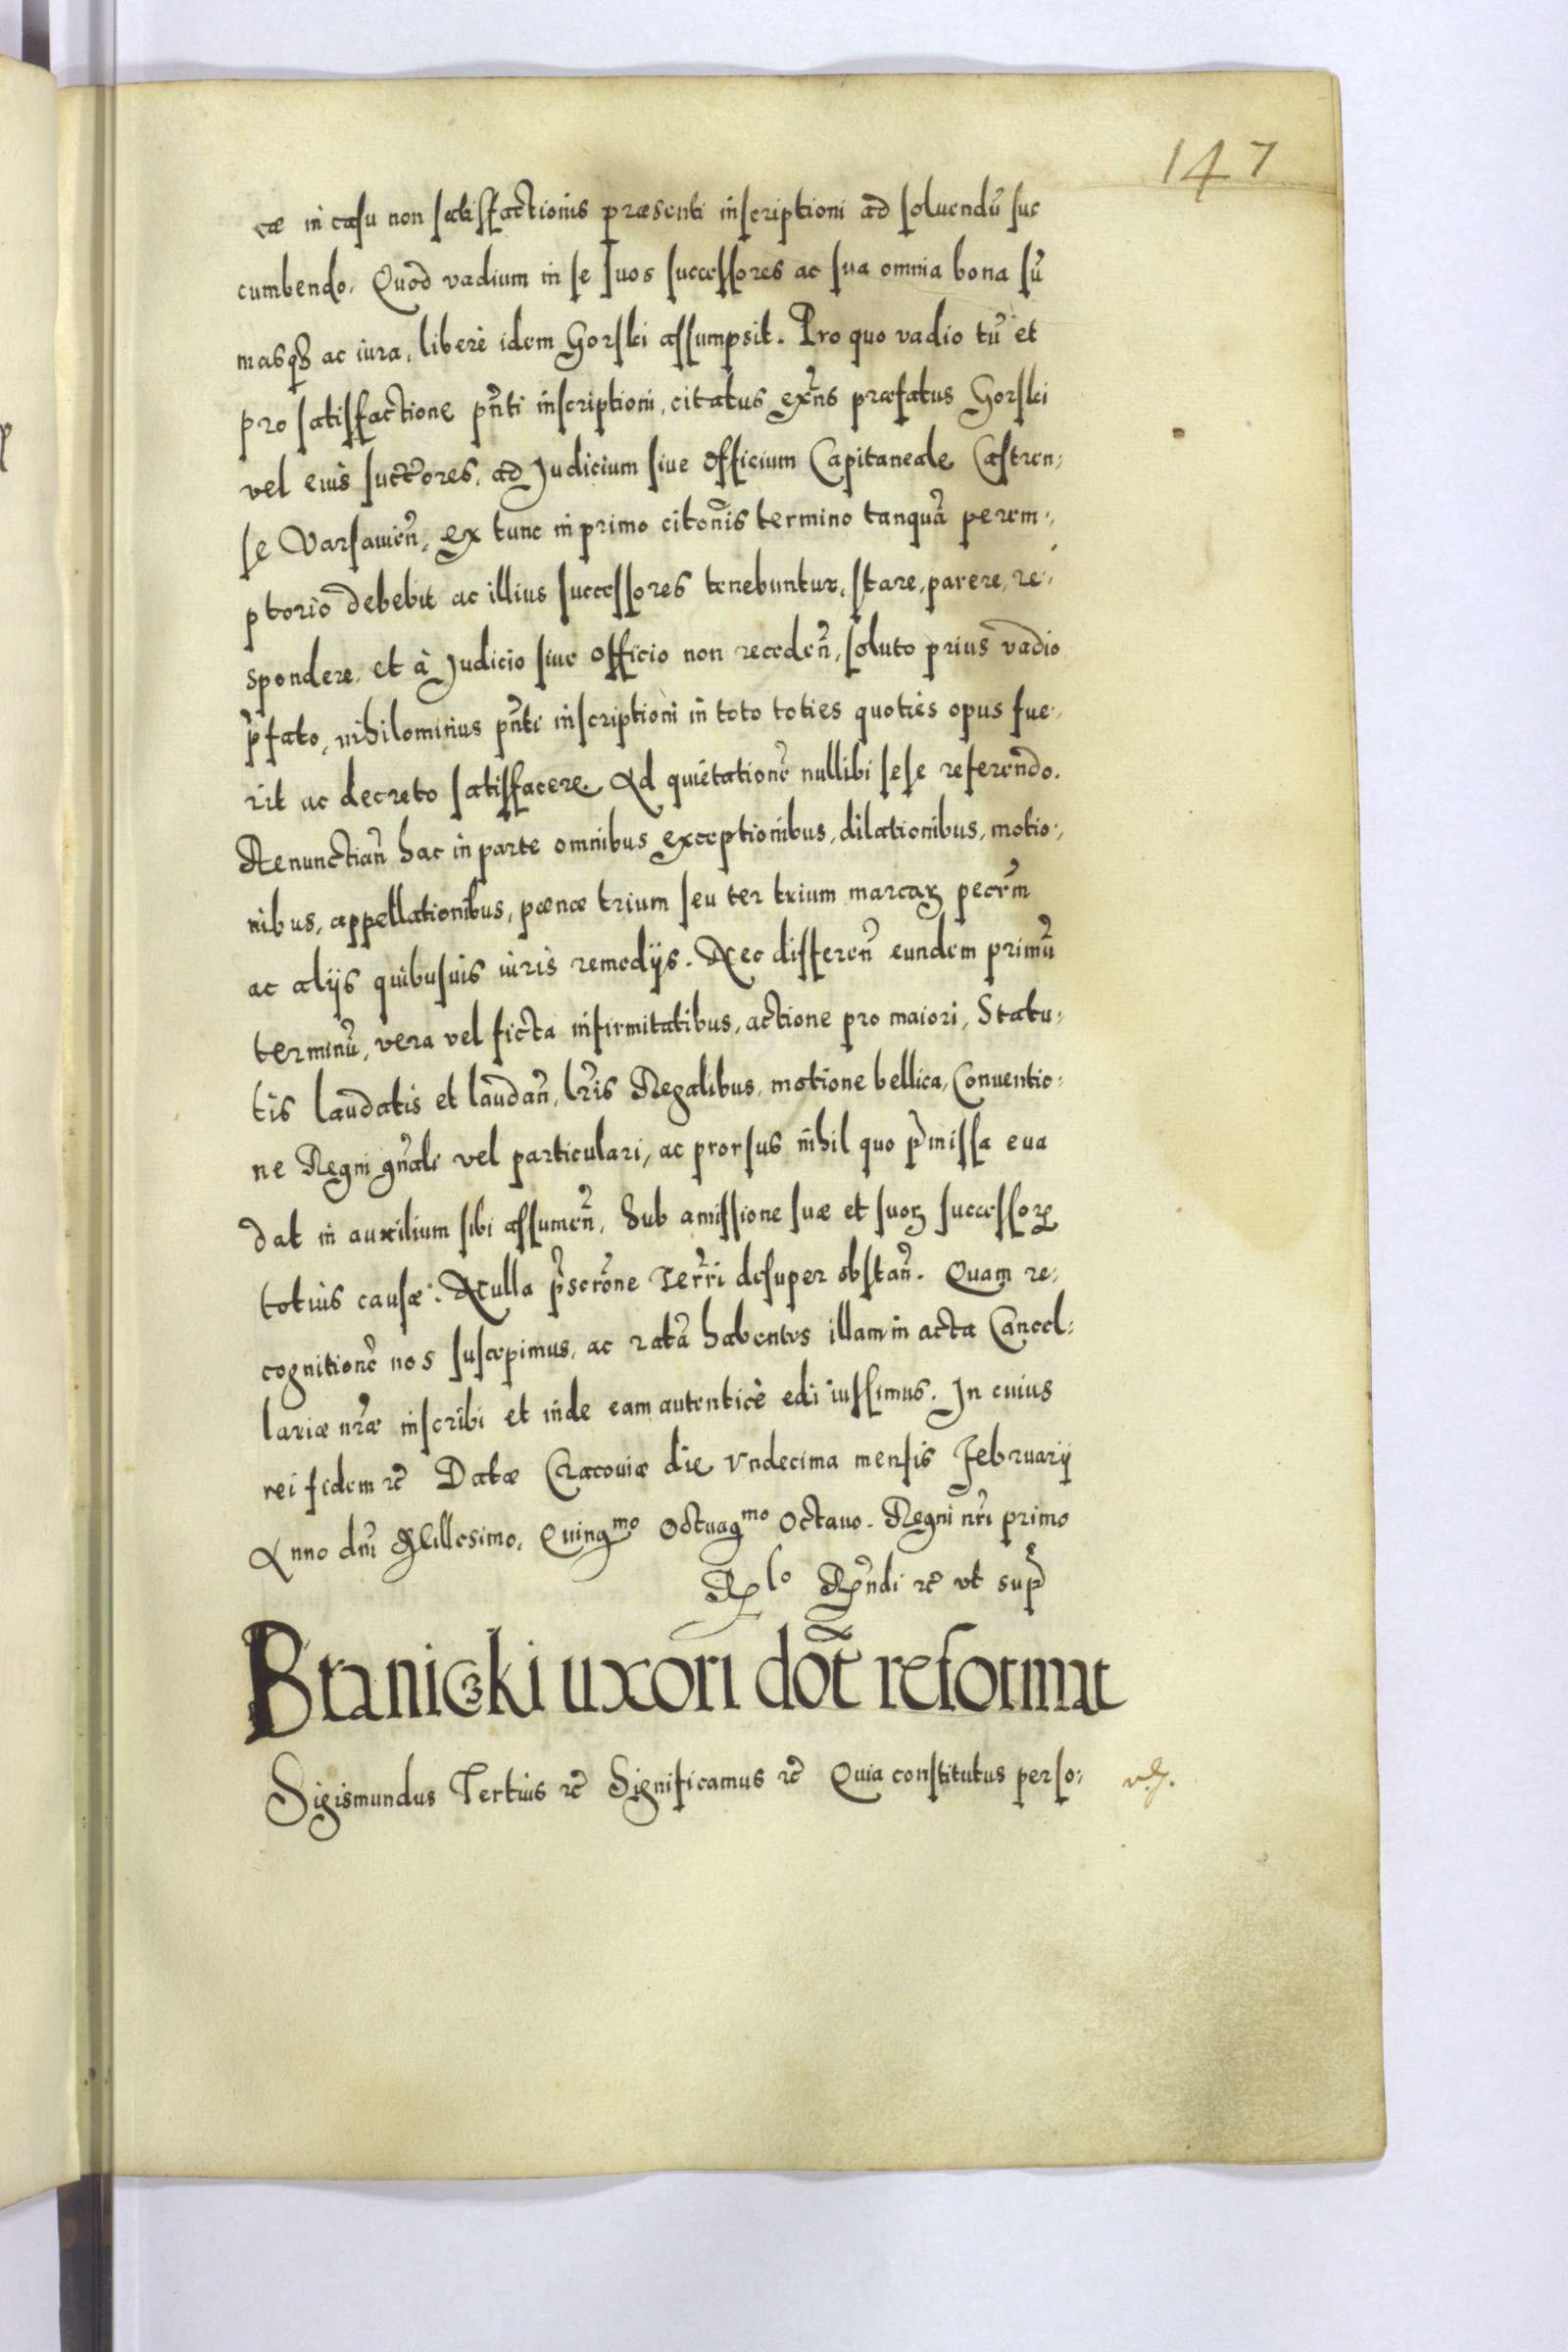 147
cæ in casu non satisfactionis præsenti inscriptioni ad soluendũ suc
cumbendo. Quod vadium in se suos successores ac sua omnia bona sũ
masq́ꝫ ac iura, liberè idem Gorski assumpsit. Pro quo vadio tũ et
pro satisfactione pñti inscriptioni, citatus exñs præfatus Gorski
vel eius succ̃ores, ad Judicium siue Officium Capitaneale Castren:
se Varsauieñ, ex tunc in primo citoñis termino tanquã perem:,
ptorio debebit ac illius successores tenebuntur, stare, parere, re:,
spondere, et à Judicio siue officio non recedeñ, soluto prius vadio
p̃fato, nihilominus pñti inscriptioni in toto toties quoties opus fue:,
rit ac decreto satisfacere. Ad quietationẽ nullibi sese referendo.
Renunctiañ hac in parte omnibus exceptionibus, dilationibus, motio:,
nibus, appellationibus, pœnæ trium seu ter trium marcaꝝ pecr̃m
ac alijs quibusuis iuris remedijs. Nec differeñ eundem primũ
terminũ, vera vel ficta infirmitatibus, actione pro maiori, Statu:
tis laudatis et laudañ, lr̃is Regalibus, motione bellica, Conuentio:
ne Regni gñali vel particulari, ac prorsus nihil quo p̃missa eua
dat in auxilium sibi assumeñ, Sub amissione suæ et suoꝝ successoꝝ
totius causæ. Nulla p̃scrõne Terr̃i desuper obstañ. Quam re:
cognitionẽ nos suscepimus, ac ratã habentes illam in acta Cancel:
lariæ nr̃æ inscribi et inde eam autenticè edi iussimus. In cuius
rei fidem ꝛc̃ Datæ Cracouiæ die Vndecima mensis Februarij
Anno dñi Millesimo, Quingᵐᵒ Octuagᵐᵒ Octauo. Regni nr̃i primo
Rˡᵒ Rñdi ꝛc̃ vt sup̃
Braniczki uxori dot̃ reformat
Sigismundus Tertius ꝛc̃ Significamus ꝛc̃ Quia constitutus perso: